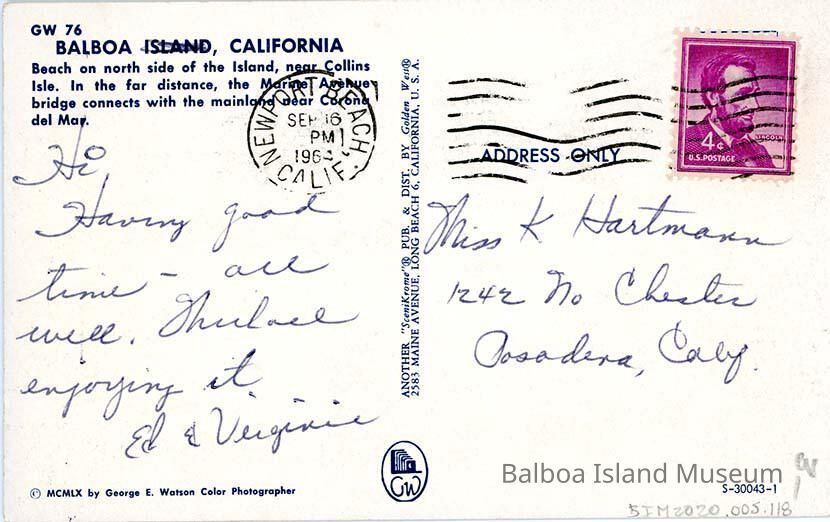 GW 76
BALBOA ISLAND, CALIFORNIA
Beach on north side of the Island, near Collins
Isle. In the far distance, the Marine Avenue
bridge connects with the mainland near Corona
del Mar.
NEWPORT BEACH,
SEP 16
PM
196
CALIF.
Hi,
Having good
time - all
well. Michael
enjoying it
Ed & Virginia
© MCMLX by George E. Watson Color Photographer
ANOTHER "SceniKrome"® PUB. & DIST. BY Golden West®
2583 MAINE AVENUE, LONG BEACH 6, CALIFORNIA, U. S. A.
GW
LINCOLN
4¢
U.S. POSTAGE
ADDRESS ONLY
Miss K Hartmann
1242 No Chester
Pasadena, Calif.
Balboa Island Museum
S-30043-1
BIM2020.005.118